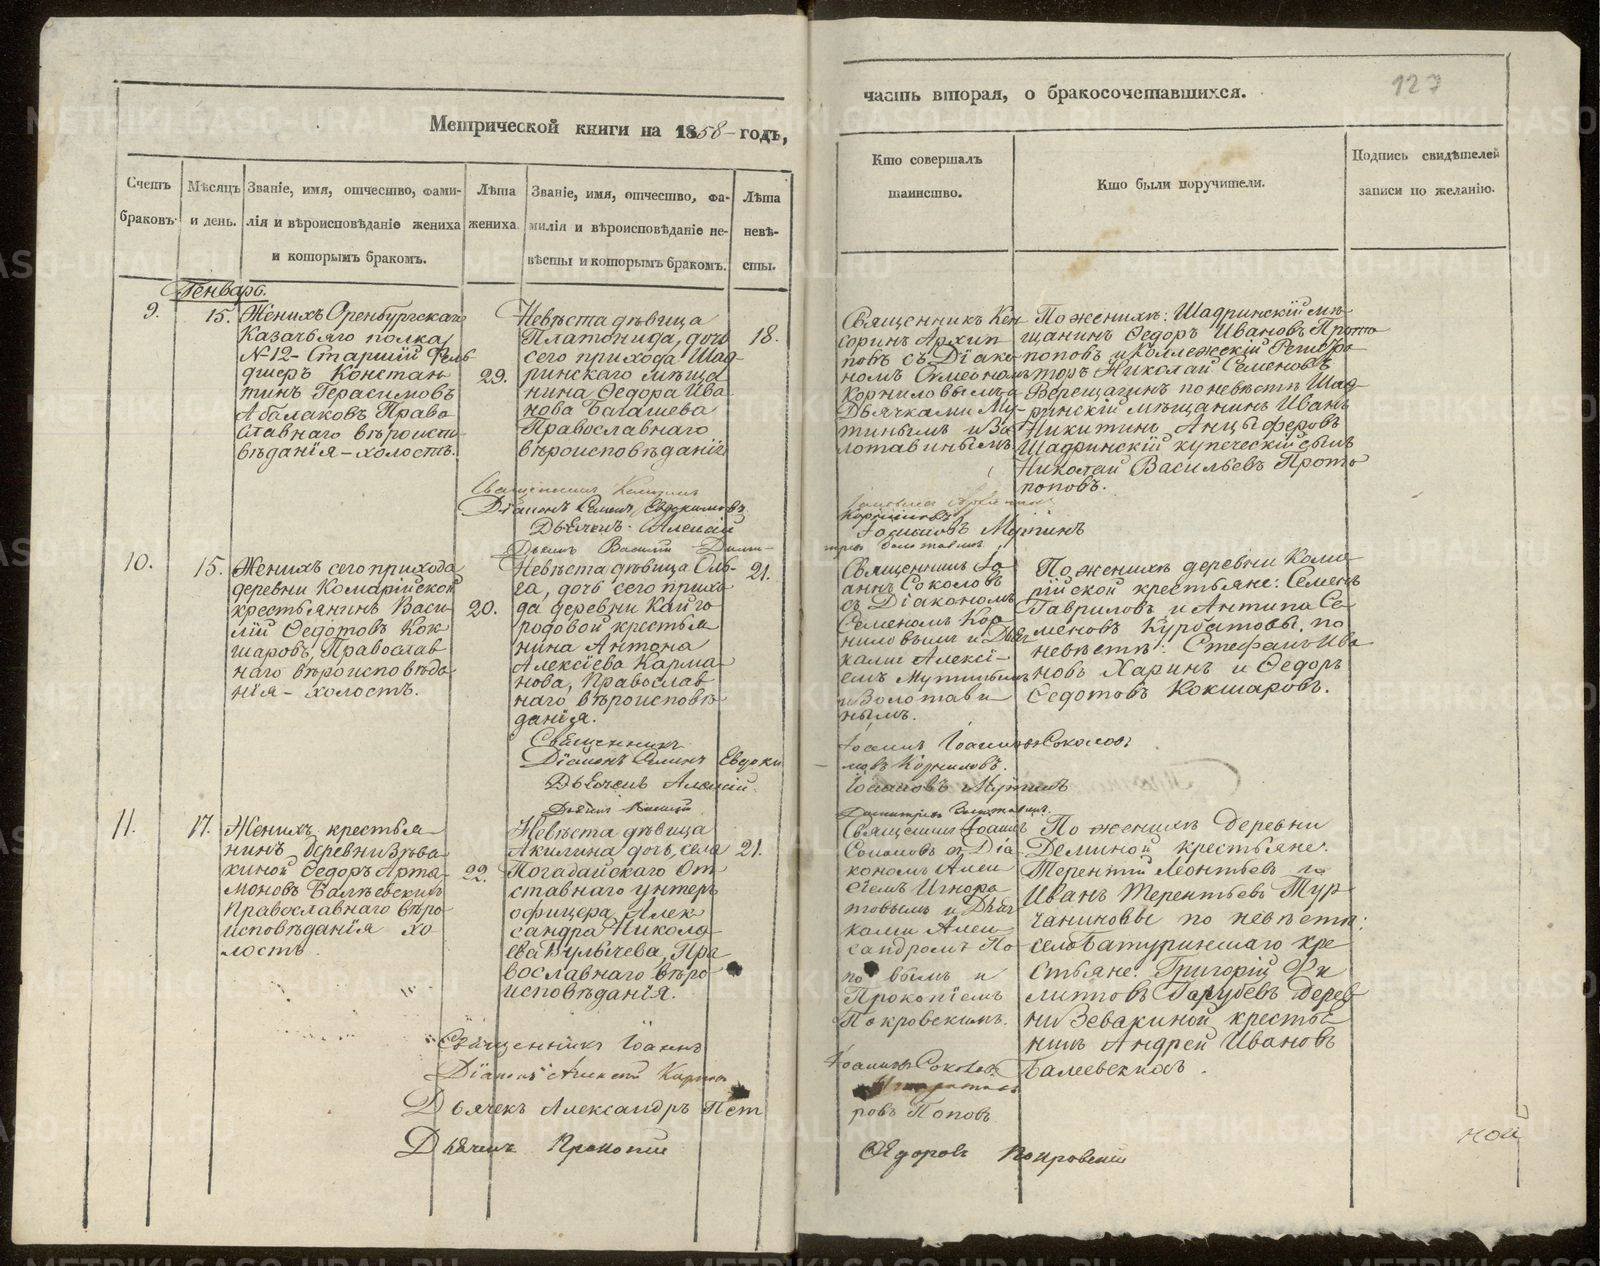 127
Метрической книги на 1858 годъ,
часть вторая, о бракосочетавшихся.
Счетъ браковъ.
Мѣсяцъ и день.
Званіе, имя, отчество, фами-
лія и вѣроисповѣданіе жениха
и которымъ бракомъ.
Лѣта жениха.
Званіе, имя, отчество, фа-
милія и вѣроисповѣданіе не-
вѣсты и которымъ бракомъ.
Лѣта невѣ-
сты.
Кто совершалъ
таинство.
Кто были поручители.
Подпись свидѣтелей
записи по желанію.
Генварь.
9.
15.
Женихъ Оренбургскаго
Казачьяго полка
№ 12 – Старшій Фель
дшеръ Констан
тинъ Герасимовъ
Абалаковъ Право
славнаго вѣроиспо
вѣданія – холостъ.
29.
Невѣста дѣвица
Платонида, дочь
сего прихода Шад-
ринскаго мѣща
нина Ѳедора Ива
нова Багашева
Православнаго
вѣроисповѣданія
18.
Священникъ Кен
соринъ Архип
повъ съ Діако
номъ Симеономъ
Корниловымъ и
Дьячками Му-
тинымъ и Зо
лотавинымъ.
По женихѣ: Шадринскій мѣ
щанинъ Ѳедоръ Ивановъ Прото
поповъ и Коллежскій Регистра
торъ Николай Семеновъ
Верещагинъ по невѣстѣ Шад
ринскій мѣщанинъ Иванъ
Никитинъ Анцыферовъ
Шадринскій купеческій сынъ
Николай Васильевъ Прото
поповъ.
Священникъ
Діаконъ Симеонъ Евдокимовъ
Корниловъ
Дьячекъ Алексій
Іоанновъ Мутинъ
Дьячекъ Василій Дими-
тріевъ Золотавинъ
10.
15.
Женихъ сего прихода
деревни Комарійской
крестьянинъ Васи-
лій Ѳедотовъ Кок
шаровъ, Православ
наго вѣроисповѣда
нія – холостъ.
20.
Невѣста дѣвица Оль-
га, дочь сего прихо
да деревни Кайго
родовой крестья
нина Антона
Алексіева Карма
нова, Православ
наго вѣроисповѣ
данія.
21.
Священникъ Іо
аннъ Соколовъ
съ Діакономъ
Семеномъ Кор
ниловымъ и Дьяч
ками Алексі-
емъ Мутинымъ
и Золотави
нымъ.
По женихѣ деревни Кома
рійской крестьяне: Семенъ
Гавриловъ и Антипа Се
меновъ Курбатовы, по
невѣстѣ: Стефанъ Ива
новъ Харинъ и Ѳедоръ
Ѳедотовъ Кокшаровъ.
Священникъ
Іоаннъ Іоанновъ Соколовъ
Діаконъ Симеонъ Евдоки
мовъ Корниловъ.
Дьячекъ Алексій
Іоанновъ Мутинъ
Дьячекъ Василій
Димитріевъ Золотавинъ.
11.
17.
Женихъ крестья
нинъ деревни Зѣва
киной Ѳедоръ Арта-
моновъ Балѣевскихъ
Православнаго вѣро
исповѣданія хо
лостъ.
22.
Невѣста дѣвица
Акилина дочь, села
Погадайскаго От
ставнаго унтеръ
офицера Алек
сандра Никола
ева Вулычева, Пра
вославнаго вѣро
исповѣданія.
21.
Священникъ Іоаннъ
Соколовъ съ Діа
кономъ Алек
сіемъ Игнора
товымъ и Дьяч
ками Алек
сандромъ По
повымъ и
Прокопіемъ
Покровскимъ.
По женихѣ деревни
Деминой крестьяне:
Терентій Леонтьевъ и
Иванъ Терентьевъ Тур
чаниновы по невѣстѣ:
села Батуринскаго кре
стьяне: Григорій Фи
липповъ Голубевъ дерев
ни Зевакиной крестья
нинъ Андрей Ивановъ
Балеевскихъ.
Священникъ Іоаннъ
Іоанновъ Соколовъ
Діаконъ Алексій
Дьячекъ Александръ Пет
ровъ Поповъ
Дьячекъ Прокопій
Ѳедоровъ Покровскій
ной
METRIKI.GASO-URAL.RU